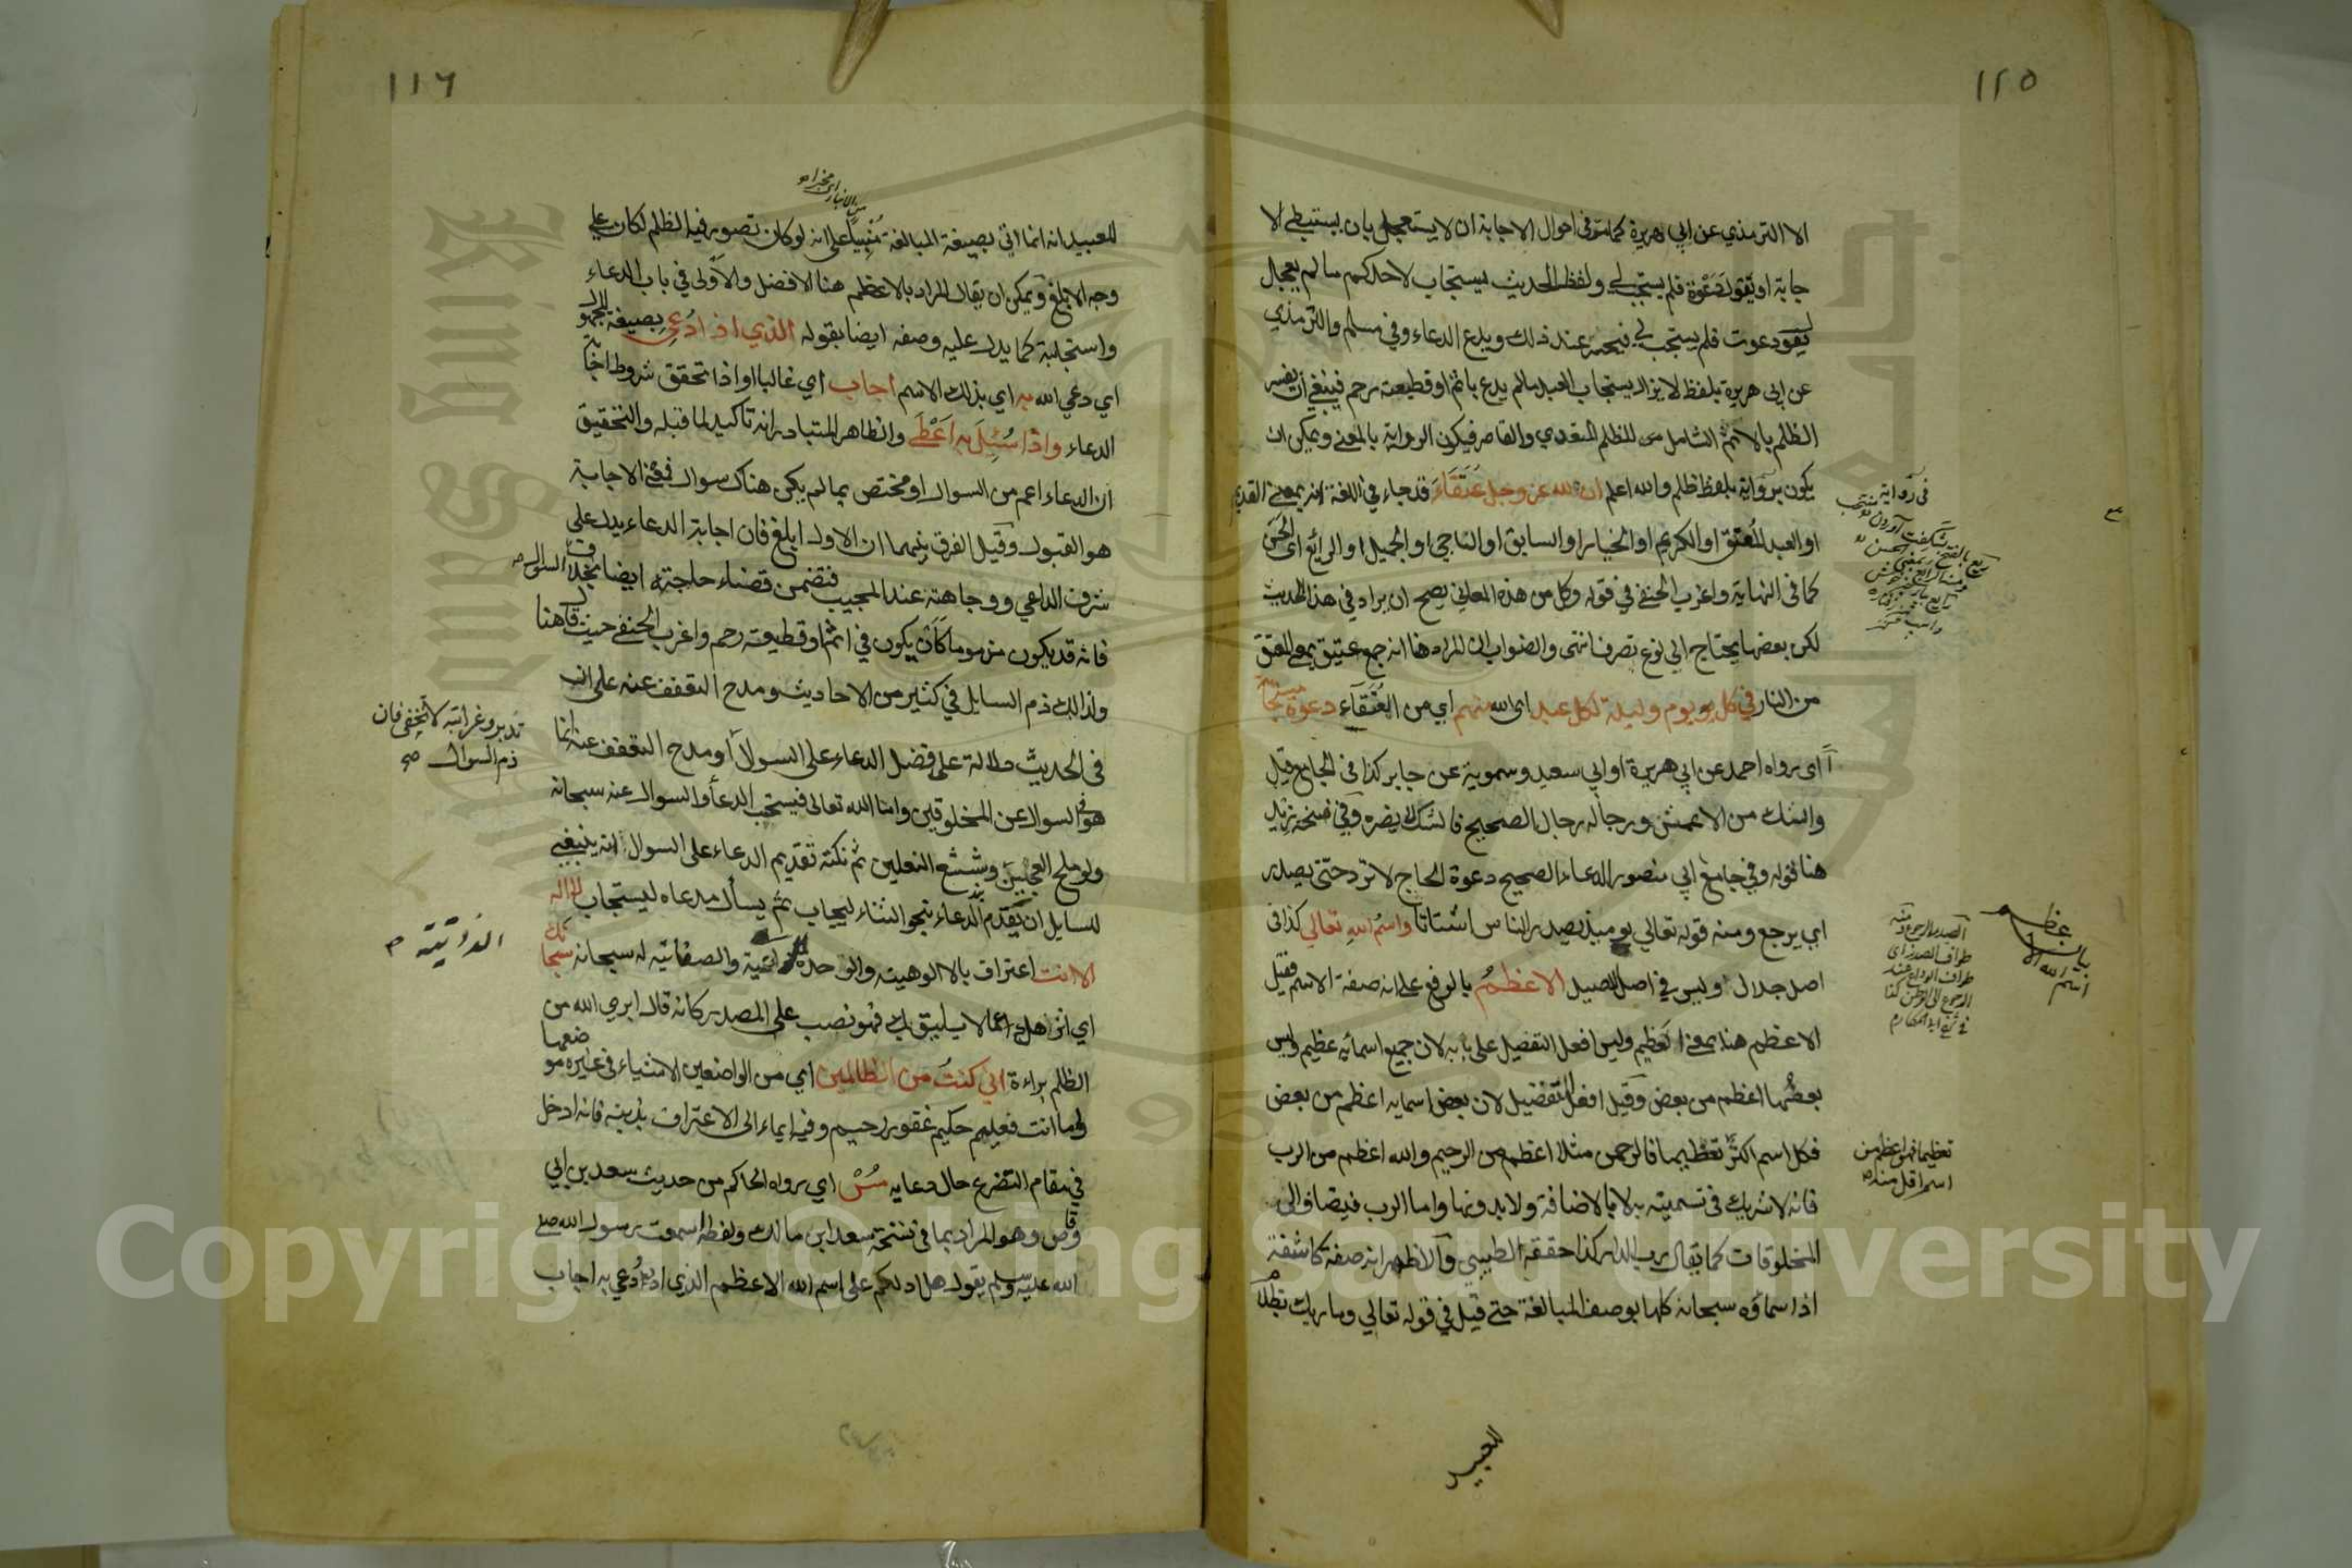 ١١٥
الا الترمذي عن ابي هريرة كما مر في احوال الاجابة ان لا يستعجل بان يستبطئ الا
جابة او يقول دعوة فلم يستجب لي ولفظ الحديث يستجاب لاحدكم ما لم يعجل
يقول دعوت فلم يستجب لي عند ذلك ويدع الدعاء وفي مسلم والترمذي
عن ابي هريرة بلفظ لا يزال يستجاب العبد ما لم يدع باثم او قطيعة رحم فينبغي ان يفسر
الظلم بالاثم الشامل من الظلم المتعدي والقاصر فيكون الرواية بالمعنى ويمكن ان
يكون برواية بلفظ ظلم والله اعلم ان لله عز وجل عتقاء قد جاء في اللغة انه بمعنى القديم
او العبد المعتق او الكريم او الخيار او السابق او الناجي او الجميل او الرائع اي الحسن
كما في النهاية واغرب الحنفي في قوله وكل من هذه المعاني يصح ان يراد في هذا الحديث
لكن بعضها يحتاج الي نوع تصرف انتهى والصواب ان المراد هنا انه جمع عتيق بمعنى المعتق
من النار في كل يوم وليلة لكل عبد اي لله منهم اي من العتقاء دعوة مستجابة
اي رواه احمد عن ابي هريرة او ابي سعيد وسموية عن جابر كذا في الجامع قيل
والشك من الاعمش ورجاله رجال الصحيح فالشك لا يضره وفي نسخة زيد
هنا قوله وفي جامع ابي منصور الدعاء الصحيح دعوة الحاج لا ترد حتى يصدر
اي يرجع ومنه قوله تعالي يومئذ يصدر الناس اشتاتا واسم الله تعالي كذا في
اصل جلال وليس في اصل الاصيل الاعظم بالرفع على انه صفة الاسم فقيل
الاعظم هنا بمعنى العظيم وليس افعل التفضيل على بابه لان جميع اسمائه عظيم وليس
بعضها اعظم من بعض وقيل افعل التفضيل لان بعض اسمايه اعظم من بعض
فكل اسم اكثر تعظيما فالرحمن مثلا اعظم من الرحيم والله اعظم من الرب
فانه لا شريك في تسميته به لا بالاضافة ولا بدونها واما الرب فيضاف الى
المخلوقات كما يقال رب الدار كذا حققه الطيبي والاظهر انه صفة كاشفة
اذ اسماؤه سبحانه كلها بوصف المبالغة حتى قيل في قوله تعالي وما ربك بظلام
تعظيما فهو اعظم من
اسم اقل منه
للعبيد
١١٦
للعبيد انه انما اتي بصيغة المبالغة على انه لو كان تصور فيه الظلم لكان على
وجه الابلغ ويمكن ان يقال المراد بالاعظم هنا الافضل والاولى في باب الدعاء
واستجلبة كما يدل عليه وصفه ايضا بقوله الذي اذا دعي بصيغة المجهول
اي دعي الله به اي بذلك الاسم اجاب اي غالبا او اذا تحقق شروط اجابة
الدعاء واذا سئل به اعطى والظاهر المتبادر انه تاكيد لما قبله والتحقيق
ان الدعاء اعم من السوال او مختص بما لم يكن هناك سوال فمعنى الاجابة
هو القبول وقيل الفرق بينهما ان الاول ابلغ فان اجابة الدعاء يدل على
شرف الداعي ووجاهته عند المجيب فتضمن قضاء حاجته ايضا بخلاف السوال
فانه قد يكون مذموما كان يكون في اثم او قطيعة رحم واغرب الحنفي حيث قال هنا
ولذالك ذم السايل في كثير من الاحاديث ومدح التعفف عنه على ان
في الحديث دلالة على فضل الدعاء على السوال او مدح التعفف عنه انما
هو السوال عن المخلوقين واما الله تعالى فيستحب الدعا والسوال عنه سبحانه
ولو ملح العجين وشسع النعلين ثم نكتة تقديم الدعاء على السوال انه ينبغي
للسايل ان يقدم الدعاء بنحو الثناء ليجاب ثم يسأل مدعاه ليستجاب لا اله
الا انت اعتراف بالالوهية والوحدة الذاتية والصفاتية له سبحانه سبحانك
اي انزهك عما لا يليق بك فهو نصب على المصدر كانه قال ابرئ الله من
الظلم براءة اني كنت من الظالمين اي من الواضعين الاشياء في غير موضعها
واما انت فعليم حكيم غفور رحيم وفيه ايماء الى الاعتراف بذنبه فانه ادخل
في مقام التضرع حال دعايه مس اي رواه الحاكم من حديث سعد بن ابي
وقاص وهو المراد بما في نسخة سعد ابن مالك ولفظه سمعت رسول الله صلى
الله عليه وسلم يقول هل ادلكم على اسم الله الاعظم الذي اذا دعي به اجاب
تدبر وغرابته لا تخفى فان
ذم السوال صح
King Saud University
Copyright © King Saud University
1957